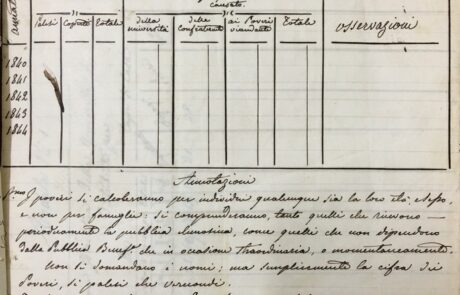 causato
annata
Palesi Coperti Totale della università delle confraternite ai Poveri viandanti Totale osservazioni
1840
1841
1842
1843
1844
Annotazioni
Pmo I poveri si calcoleranno per individui qualunque sia la loro età, e sesso,
e non per famiglie: si comprenderanno, tanto quelli che ricevono
periodicamente la pubblica elemosina, come quelli che non dependono
dalla Pubblica Benefza che in occasione straordinaria, o momentaneamente.
Non si domandano i nomi; ma semplicemente la cifra dei
Poveri, si palesi che vergondi.